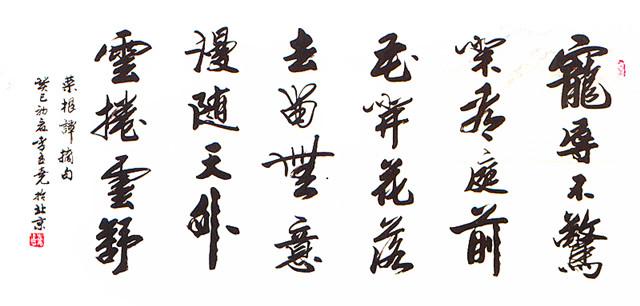 寵辱不驚
閑看庭前
花開花落
去留無意
漫随天外
雲捲雲舒
菜根譚摘句
癸巳初夏李堯於北京